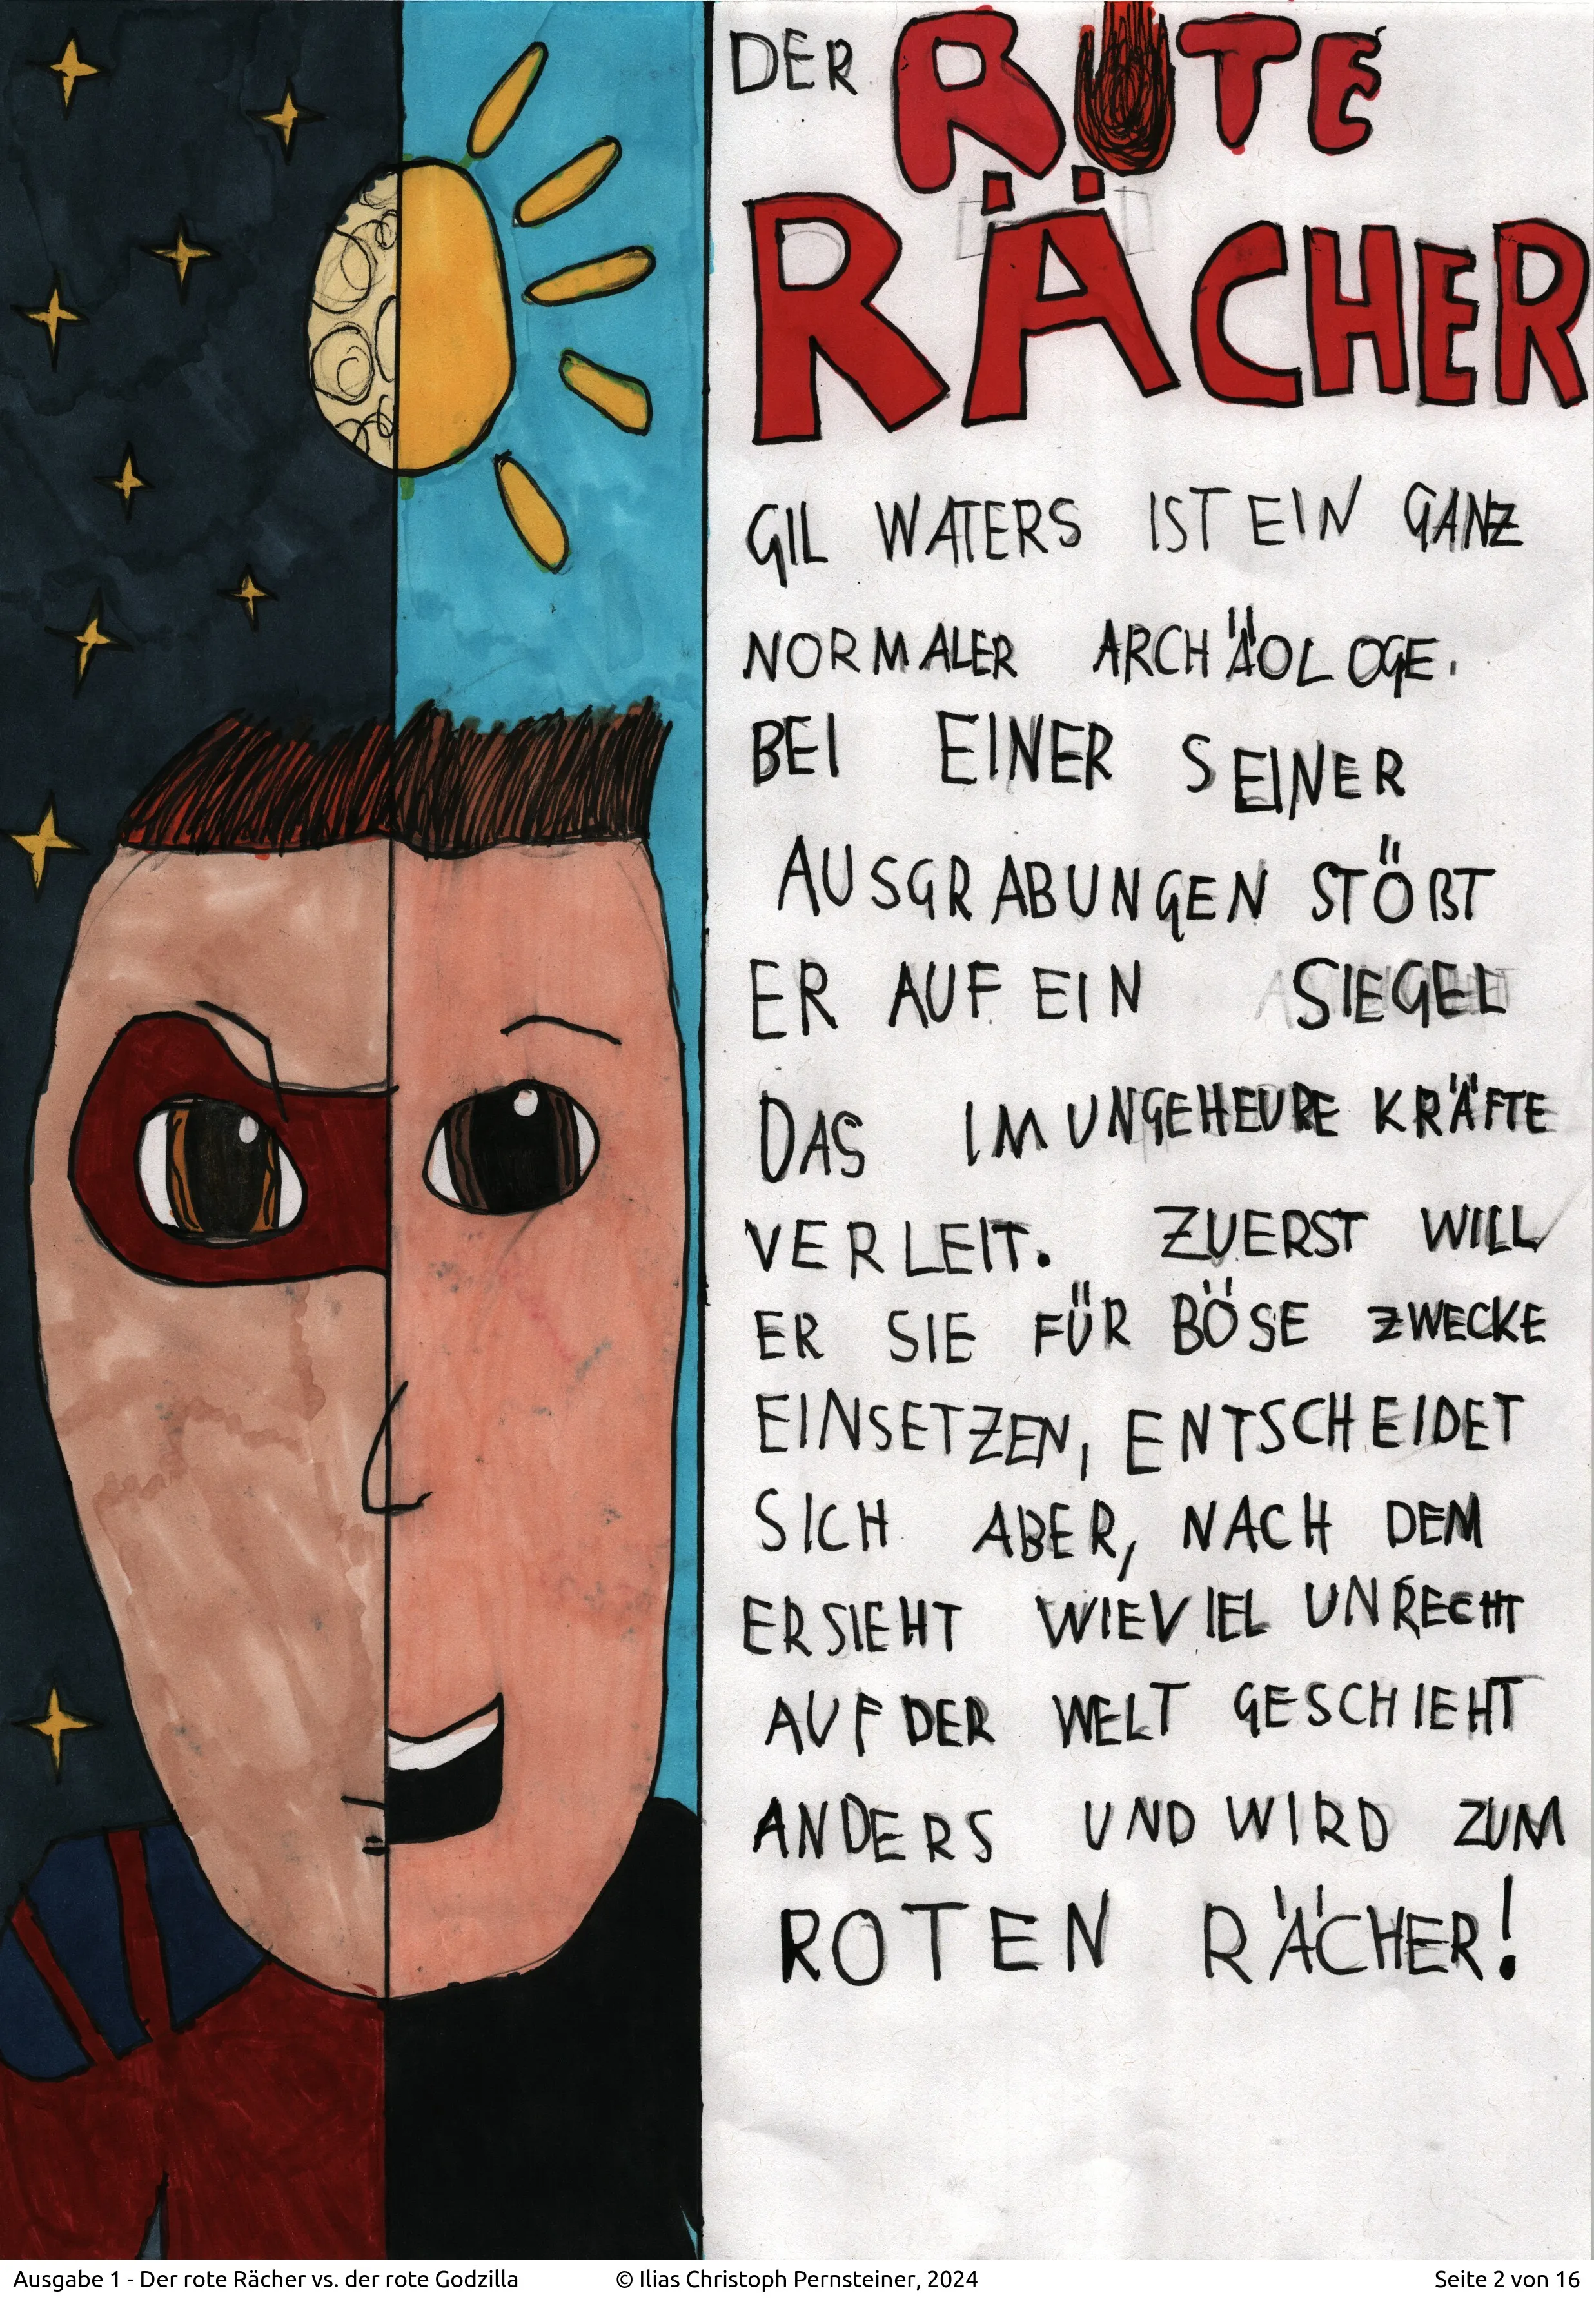 DER ROTE
RÄCHER
GIL WATERS IST EIN GANZ
NORMALER ARCHÄOLOGE.
BEI EINER SEINER
AUSGRABUNGEN STÖßT
ER AUF EIN SIEGEL
DAS IM UNGEHEURE KRÄFTE
VERLEIT. ZUERST WILL
ER SIE FÜR BÖSE ZWECKE
EINSETZEN, ENTSCHEIDET
SICH ABER, NACH DEM
ER SIEHT WIEVIEL UNRECHT
AUF DER WELT GESCHIEHT
ANDERS UND WIRD ZUM
ROTEN RÄCHER!
Ausgabe 1 - Der rote Rächer vs. der rote Godzilla © Ilias Christoph Pernsteiner, 2024 Seite 2 von 16